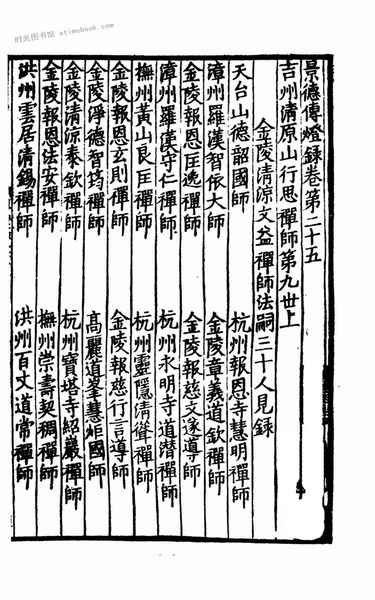 时光图书馆 stimebook.com
景德傳燈錄卷第二十五
吉州清原山行思禪師第九世上
金陵清涼文益禪師法嗣三十人見錄
天台山德韶國師 杭州報恩寺慧明禪師
漳州羅漢智依大師 金陵章義道欽禪師
金陵報恩匡逸禪師 金陵報慈文遂導師
漳州羅漢守仁禪師 杭州永明寺道潛禪師
撫州黃山良匡禪師 杭州靈隱清聳禪師
金陵報恩玄則禪師 金陵報慈行言導師
金陵淨德智筠禪師 高麗道峯慧炬國師
金陵清涼泰欽禪師 杭州寶塔寺紹巖禪師
金陵報恩法安禪師 撫州崇壽契稠禪師
洪州雲居清錫禪師 洪州百丈道常禪師